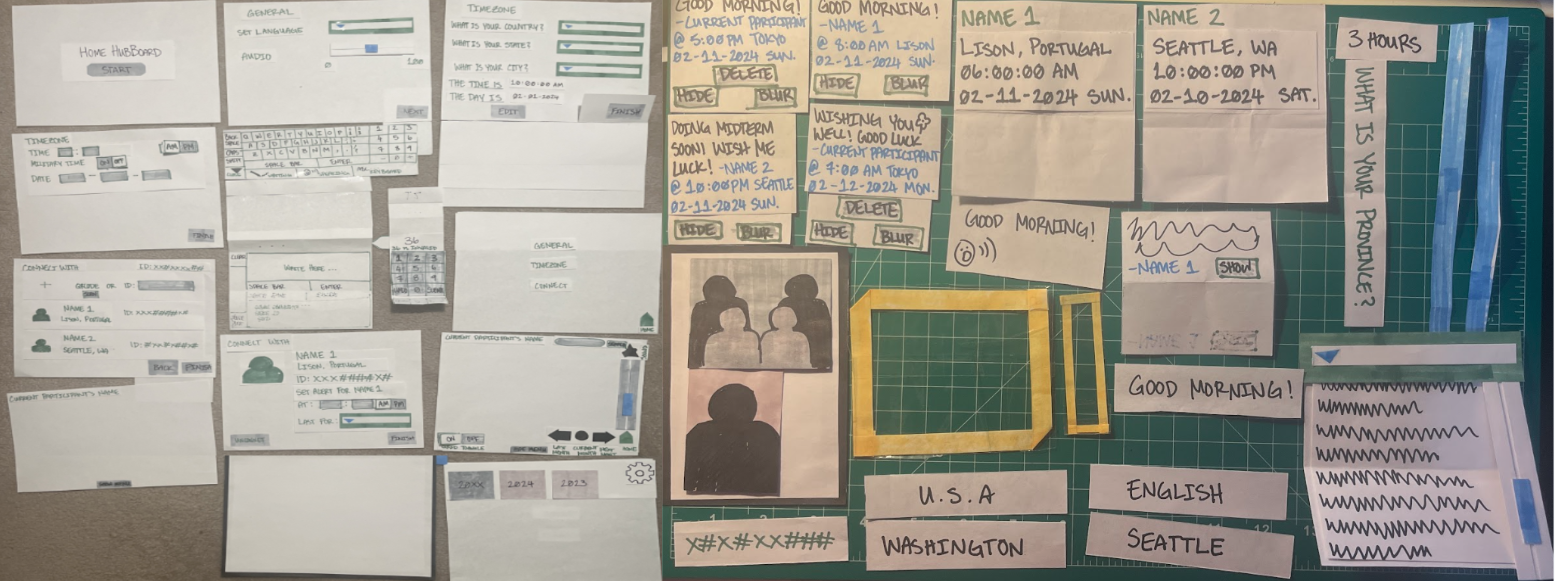 HOME HUBBOARD
START
GENERAL
SET LANGUAGE
AUDIO
0 100
NEXT
TIMEZONE
WHAT IS YOUR COUNTRY?
WHAT IS YOUR STATE?
WHAT IS YOUR CITY?
THE TIME IS 10:00:00 AM
THE DAY IS 02-02-2024
EDIT FINISH
TIMEZONE
TIME : AM PM
MILITARY TIME ON OFF
DATE
SPACE BAR ENTER
WRITE HERE...
SPACE BAR ENTER
36
GENERAL
TIMEZONE
CONNECT
HOME
CONNECT WITH
GROUP OR ID:
NAME 1
LISON, PORTUGAL
NAME 2
SEATTLE, WA
BACK FINISH
CONNECT WITH
NAME 1
LISON, PORTUGAL
ID: XXX####X#
SET ALERT FOR NAME 1
AT: : AM PM
LAST FOR:
FINISH
CURRENT PARTICIPANT'S NAME
ON OFF
HOME
CURRENT PARTICIPANT'S NAME
20XX 2024 2023
GOOD MORNING!
-CURRENT PARTICIPANT
@ 5:00PM TOKYO
02-11-2024 SUN.
DELETE
HIDE BLUR
GOOD MORNING!
-NAME 1
@ 8:00AM LISON
02-11-2024 SUN.
HIDE BLUR
DOING MIDTERM
SOON! WISH ME
LUCK! -NAME 2
@ 10:00PM SEATTLE
02-11-2024 SUN.
HIDE BLUR
WISHING YOU
WELL! GOOD LUCK
-CURRENT PARTICIPANT
@ 7:00AM TOKYO
02-12-2024 MON.
DELETE
HIDE BLUR
NAME 1
LISON, PORTUGAL
06:00:00 AM
02-11-2024 SUN.
NAME 2
SEATTLE, WA
10:00:00 PM
02-10-2024 SAT.
3 HOURS
WHAT IS YOUR PROVINCE?
GOOD MORNING!
-NAME 1 SHOW
GOOD MORNING!
U.S.A
ENGLISH
X#X#XX###
WASHINGTON
SEATTLE